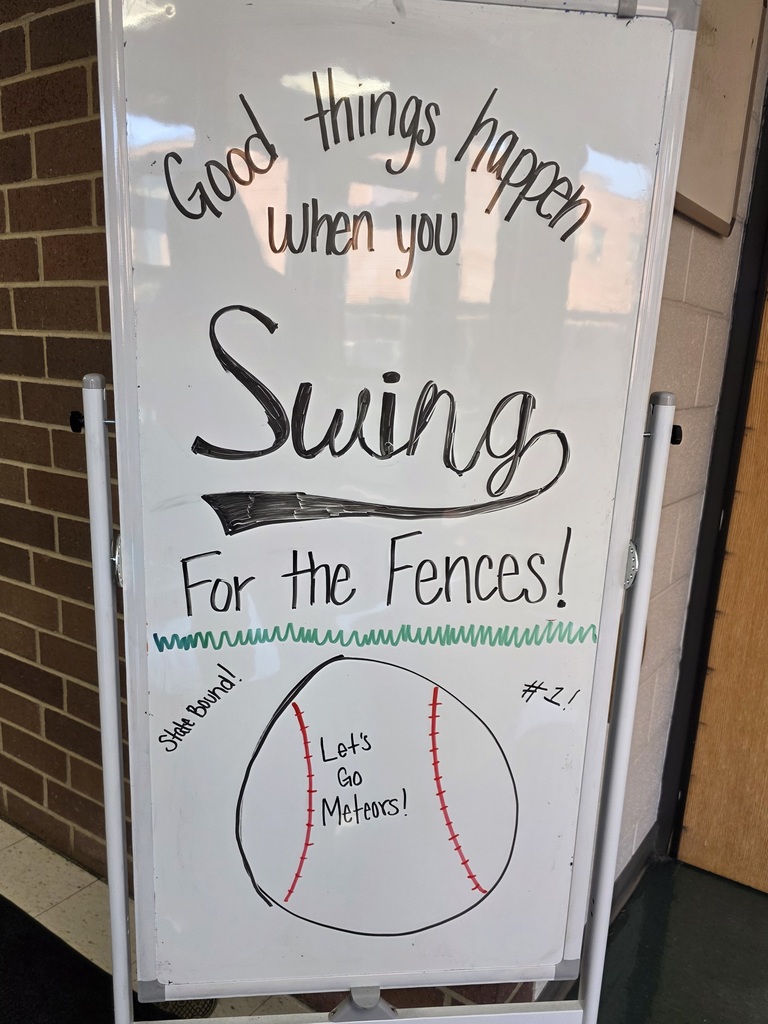 Good things happen
when you
Swing
For the Fences!
State Bound!
#1!
Let's
Go
Meteors!